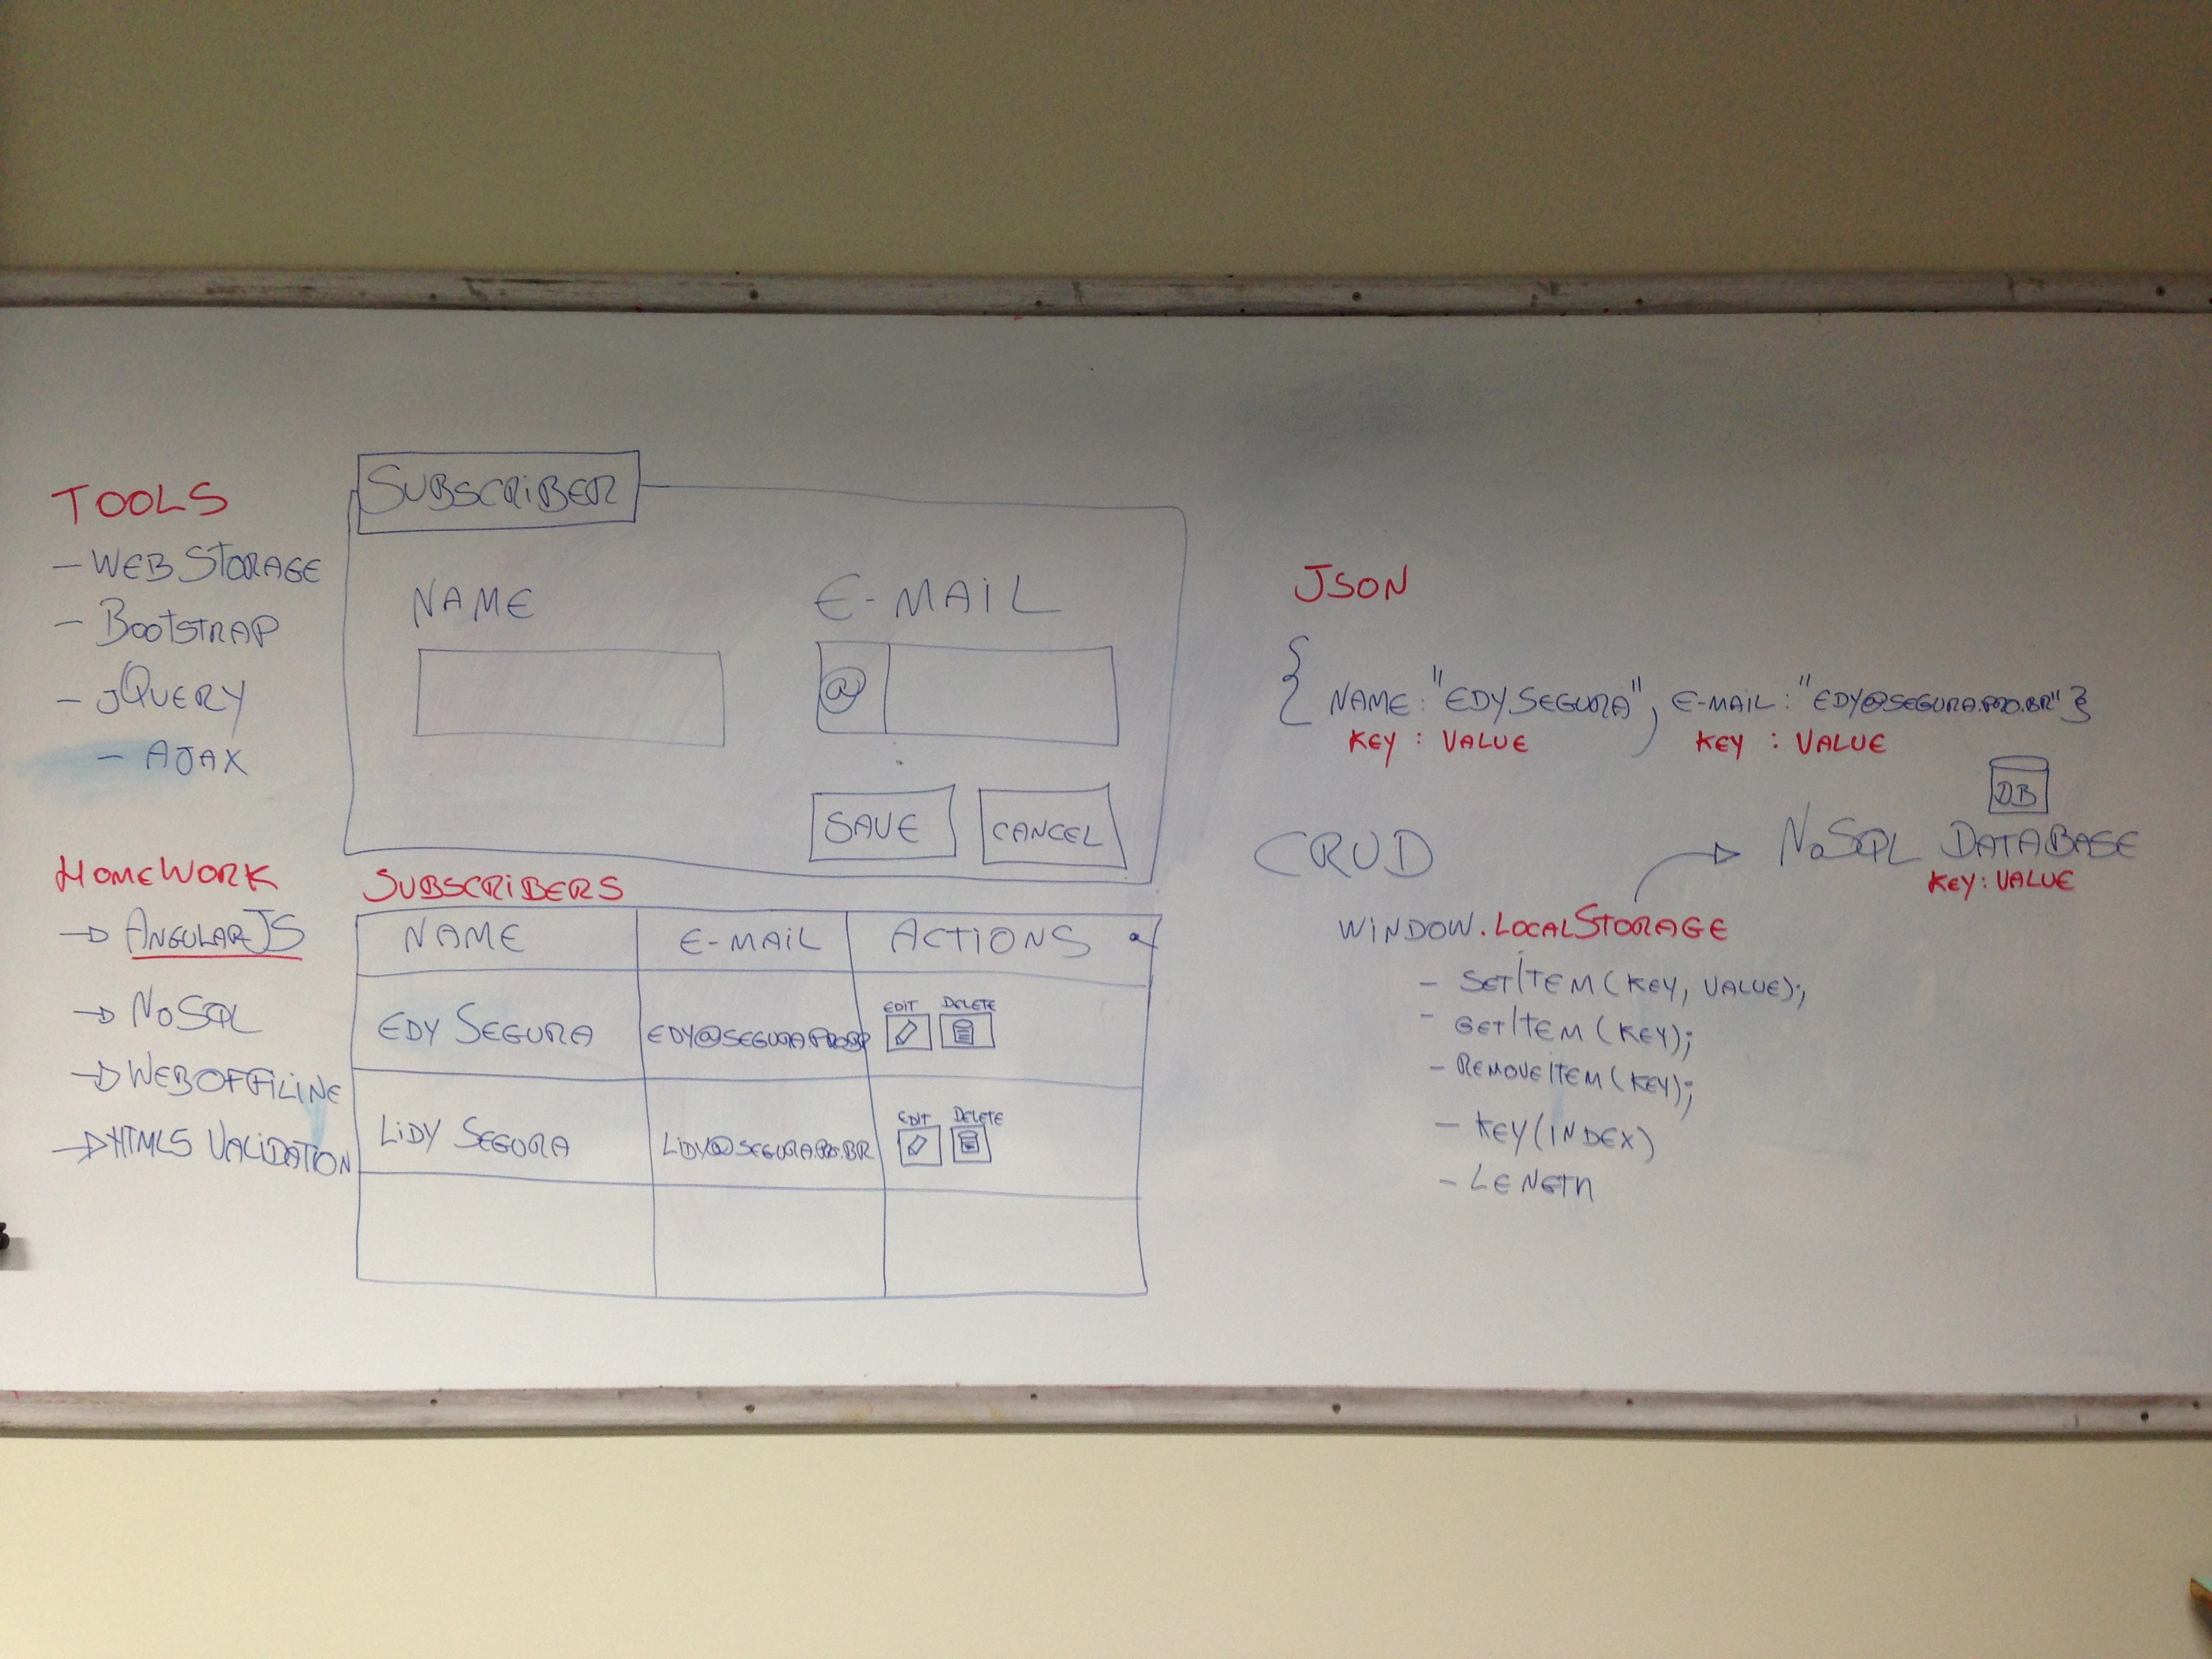 TOOLS
- WEB STORAGE
- BOOTSTRAP
- JQUERY
- AJAX
HOMEWORK
ANGULARJS
NOSQL
WEB OFFILINE
HTML5 VALIDATION
SUBSCRIBER
NAME E-MAIL
@
SAVE CANCEL
SUBSCRIBERS
NAME E-MAIL ACTIONS
EDIT DELETE
EDY SEGURA EDY@SEGURA.PRO.BR
EDIT DELETE
LIDY SEGURA LIDY@SEGURA.PRO.BR
JSON
{ NAME: "EDY SEGURA", E-MAIL: "EDY@SEGURA.PRO.BR" }
KEY : VALUE KEY : VALUE
DB
CRUD NOSQL DATABASE
KEY: VALUE
WINDOW.LOCALSTORAGE
- SETITEM (KEY, VALUE);
- GETITEM (KEY);
- REMOVEITEM (KEY);
- KEY (INDEX)
- LENGTH